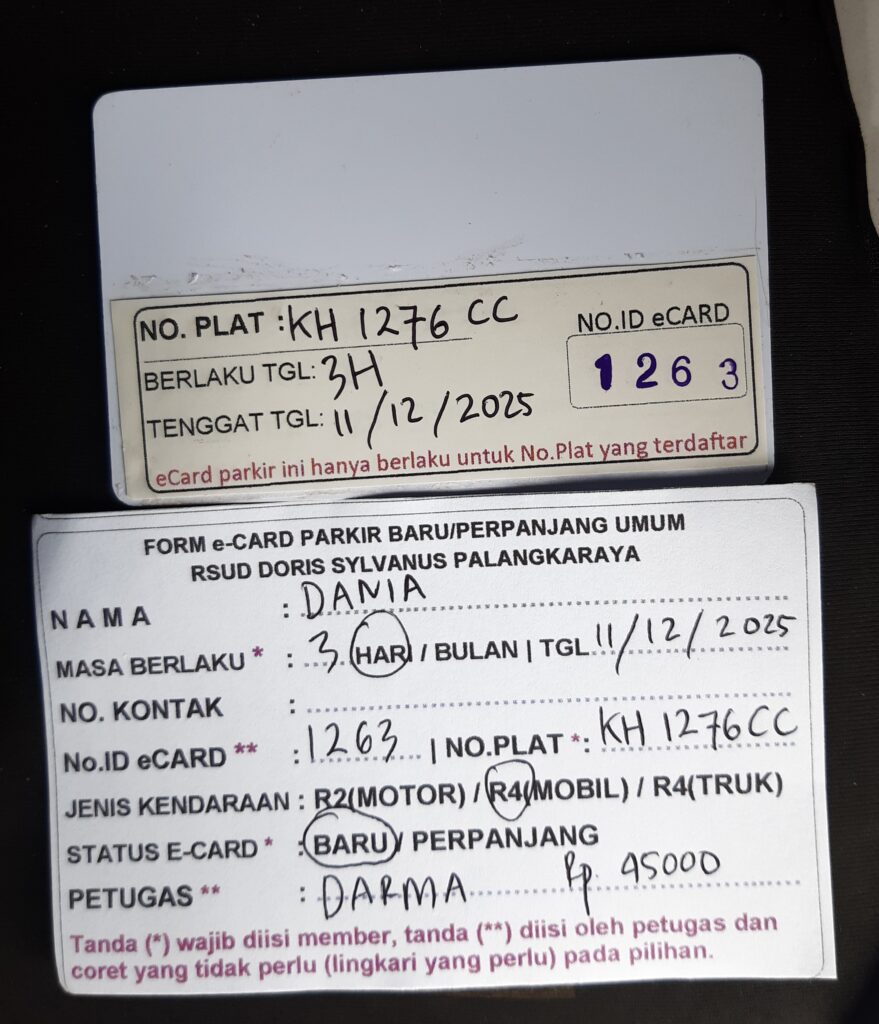 NO. PLAT : KH 1276 CC
NO.ID eCARD
1263
BERLAKU TGL: 3H
TENGGAT TGL: 11/12/2025
eCard parkir ini hanya berlaku untuk No.Plat yang terdaftar
FORM e-CARD PARKIR BARU/PERPANJANG UMUM
RSUD DORIS SYLVANUS PALANGKARAYA
NAMA : DANIA
MASA BERLAKU * : 3 HARI / BULAN | TGL 11/12/2025
NO. KONTAK :
No.ID eCARD ** : 1263 | NO.PLAT *: KH 1276 CC
JENIS KENDARAAN : R2(MOTOR) / R4(MOBIL) / R4(TRUK)
STATUS E-CARD * : BARU / PERPANJANG
PETUGAS ** : DARMA Rp. 45000
Tanda (*) wajib diisi member, tanda (**) diisi oleh petugas dan
coret yang tidak perlu (lingkari yang perlu) pada pilihan.